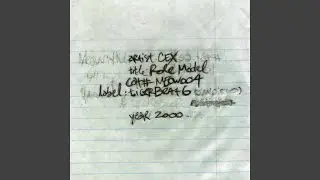 artist CEX
title Role Model
CAT# MEOW004
label: TIGERBEAT6
year 2000